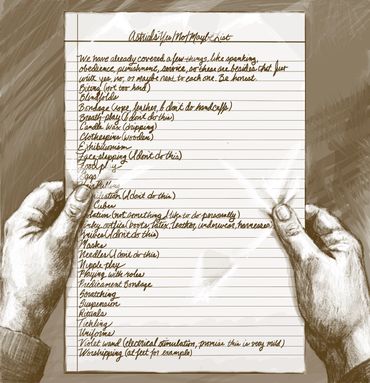 Astrid's Yes/No/Maybe List
We have already covered a few things, like spanking,
obedience, punishment, service, so these are besides that. Just
write yes, no, or maybe next to each one. Be honest.
Biting (not too hard)
Blindfolds
Bondage (rope, leather, I don't do handcuffs)
Breath play (I don't do this)
Candle wax (dripping)
Clothespins (wooden)
Exhibitionism
Face slapping (I don't do this)
Food play
Gags
(I don't do this)
Cubes
(not something I like to do personally)
outfits (boots, latex, leather, underwear, harnesses)
Knives (I don't do this)
Masks
Needles (I don't do this)
Nipple play
Playing with roles
Predicament Bondage
Scratching
Suspension
Rituals
Tickling
Uniforms
Violet wand (electrical stimulation, promise this is very mild)
Worshipping (at feet for example)